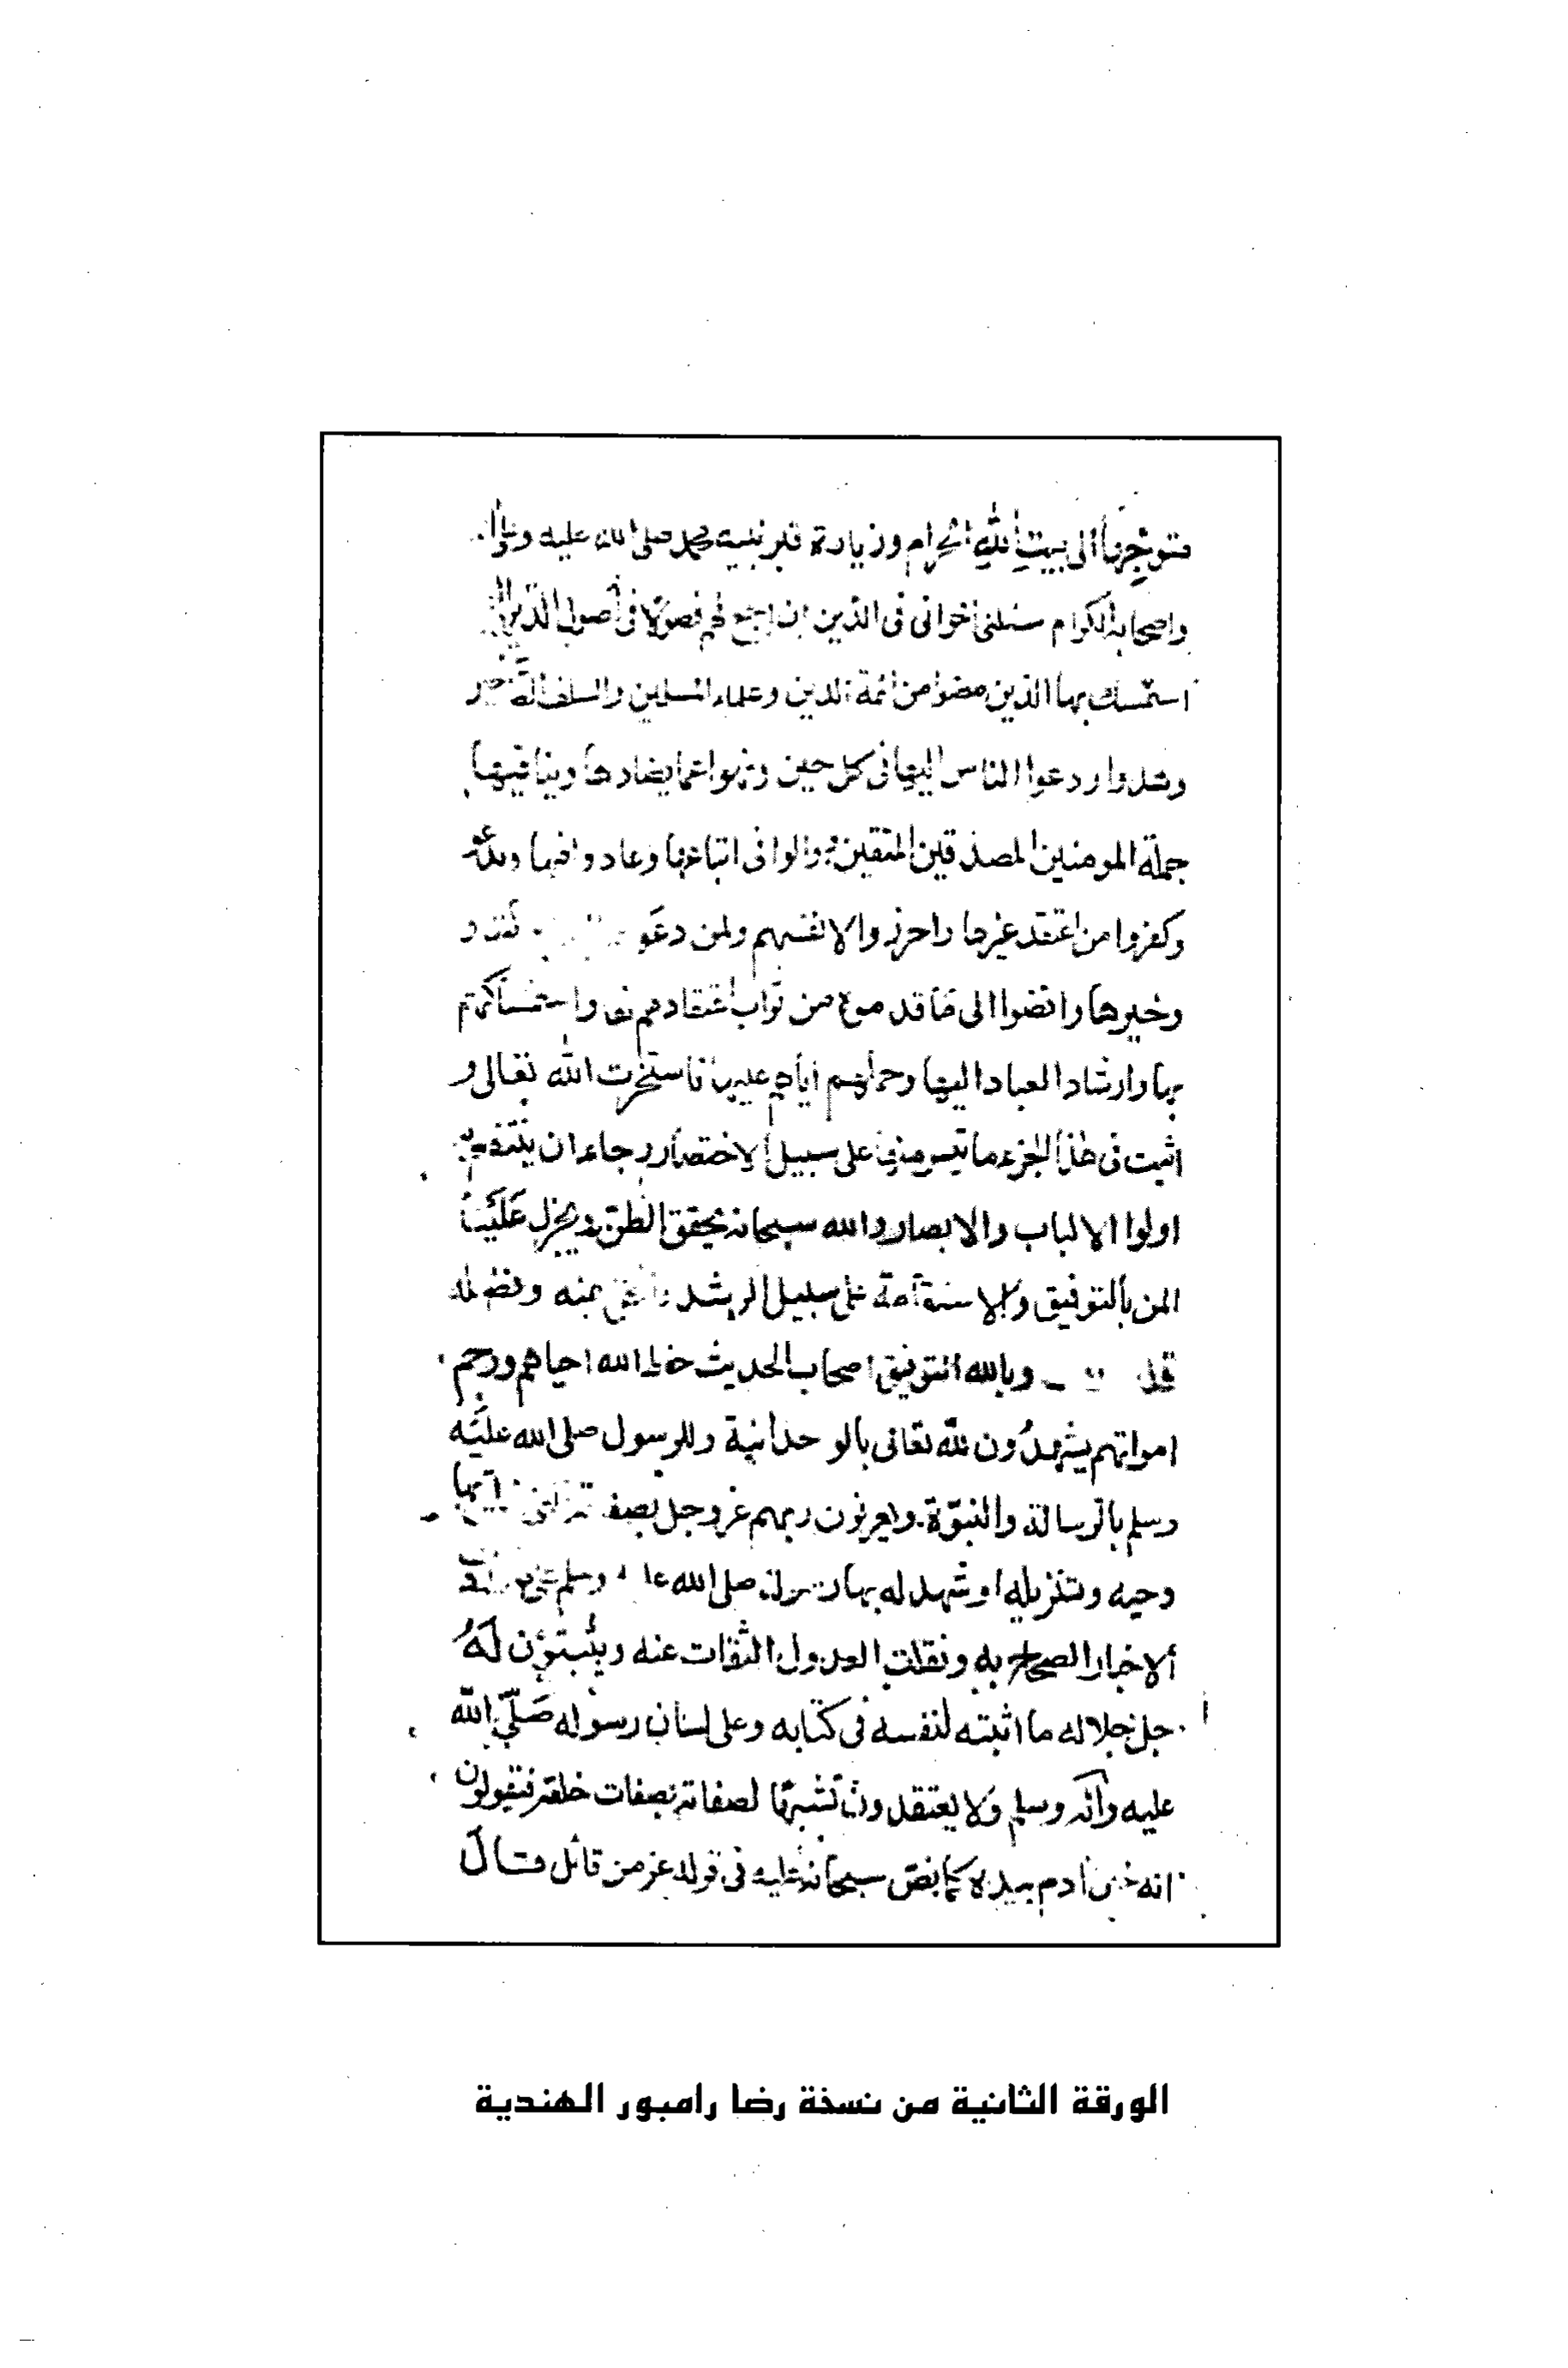 متوجها الى بيت الله الحرام وزيارة قبر نبيه محمد صلى الله عليه وعلى
واصحابه الكرام سئلنى اخوانى فى الدين ان اجمع لهم فصولا فى أصول الدين
استمسك بها الذين مضوا من ائمة الدين وعلماء المسلمين والسلف
ودعوا الناس اليها فى كل حين ونهوا عما يضادها وينافيها
جملة المومنين المصدقين المتقين ووالوا فى اتباعها وعادوا فيها
وكفروا من اعتقد غيرها واحرزوا لانفسهم ولمن دعو
وخيرها وافضوا الى ما قدموه من ثواب اعتقادهم لها واستمساكهم
بها وارشاد العباد اليها وحملهم اياهم عليها فاستخرت الله تعالى و
اثبت فى هذا الجزء ما تيسر منها على سبيل الاختصار رجاء ان ينتفع به
اولوا الالباب والابصار والله سبحانه يحقق الظن ويجزل علينا
المن بالتوفيق والاستقامة على سبيل الرشد والحق بمنه وفضله
قلت وبالله التوفيق اصحاب الحديث حفظ الله احياهم ورحم
امواتهم يشهدون لله تعالى بالوحدانية وللرسول صلى الله عليه
وسلم بالرسالة والنبوّة ويعرفون ربهم عز وجل بصفاته التى بها
وحيه وتنزيله او شهد له بها رسوله صلى الله عليه وسلم على ما وردت
الاخبار الصحاح به ونقلت العدول الثقات عنه ويثبتون له
جل جلاله ما اثبته لنفسه فى كتابه وعلى لسان رسوله صلّى الله
عليه وآله وسلم ولا يعتقدون تشبيها لصفاته بصفات خلقه فيقولون
انه خلق آدم بيده كما نص سبحانه عليه فى قوله عز من قائل قال
الورقة الثانية من نسخة رضا رامبور الهندية